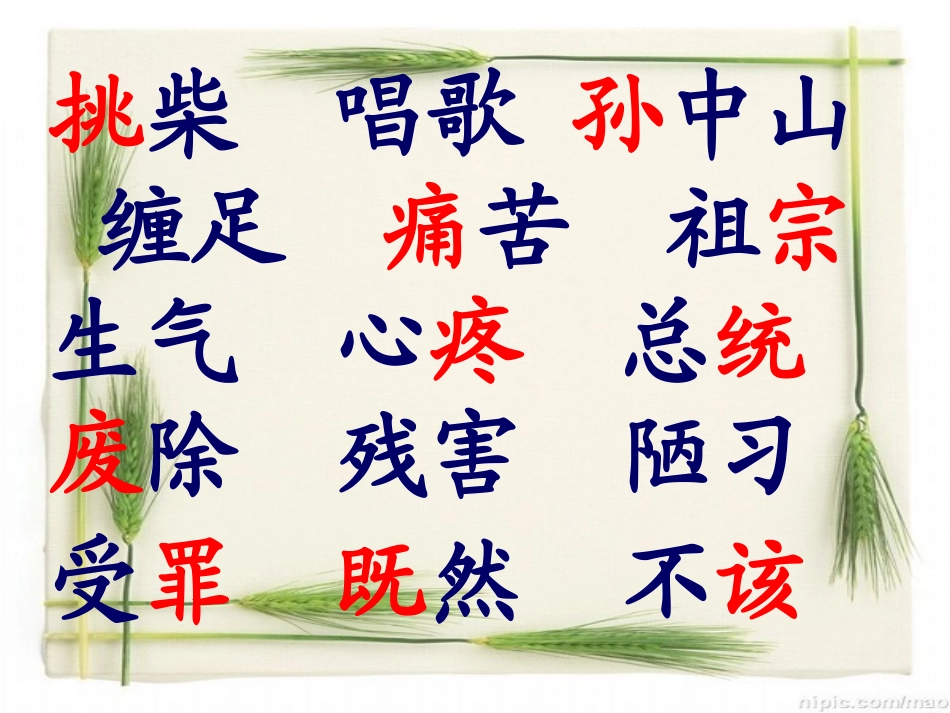 挑柴 唱歌 孙中山
缠足 痛苦 祖宗
生气 心疼 总统
废除 残害 陋习
受罪 既然 不该
nipic.com/mao